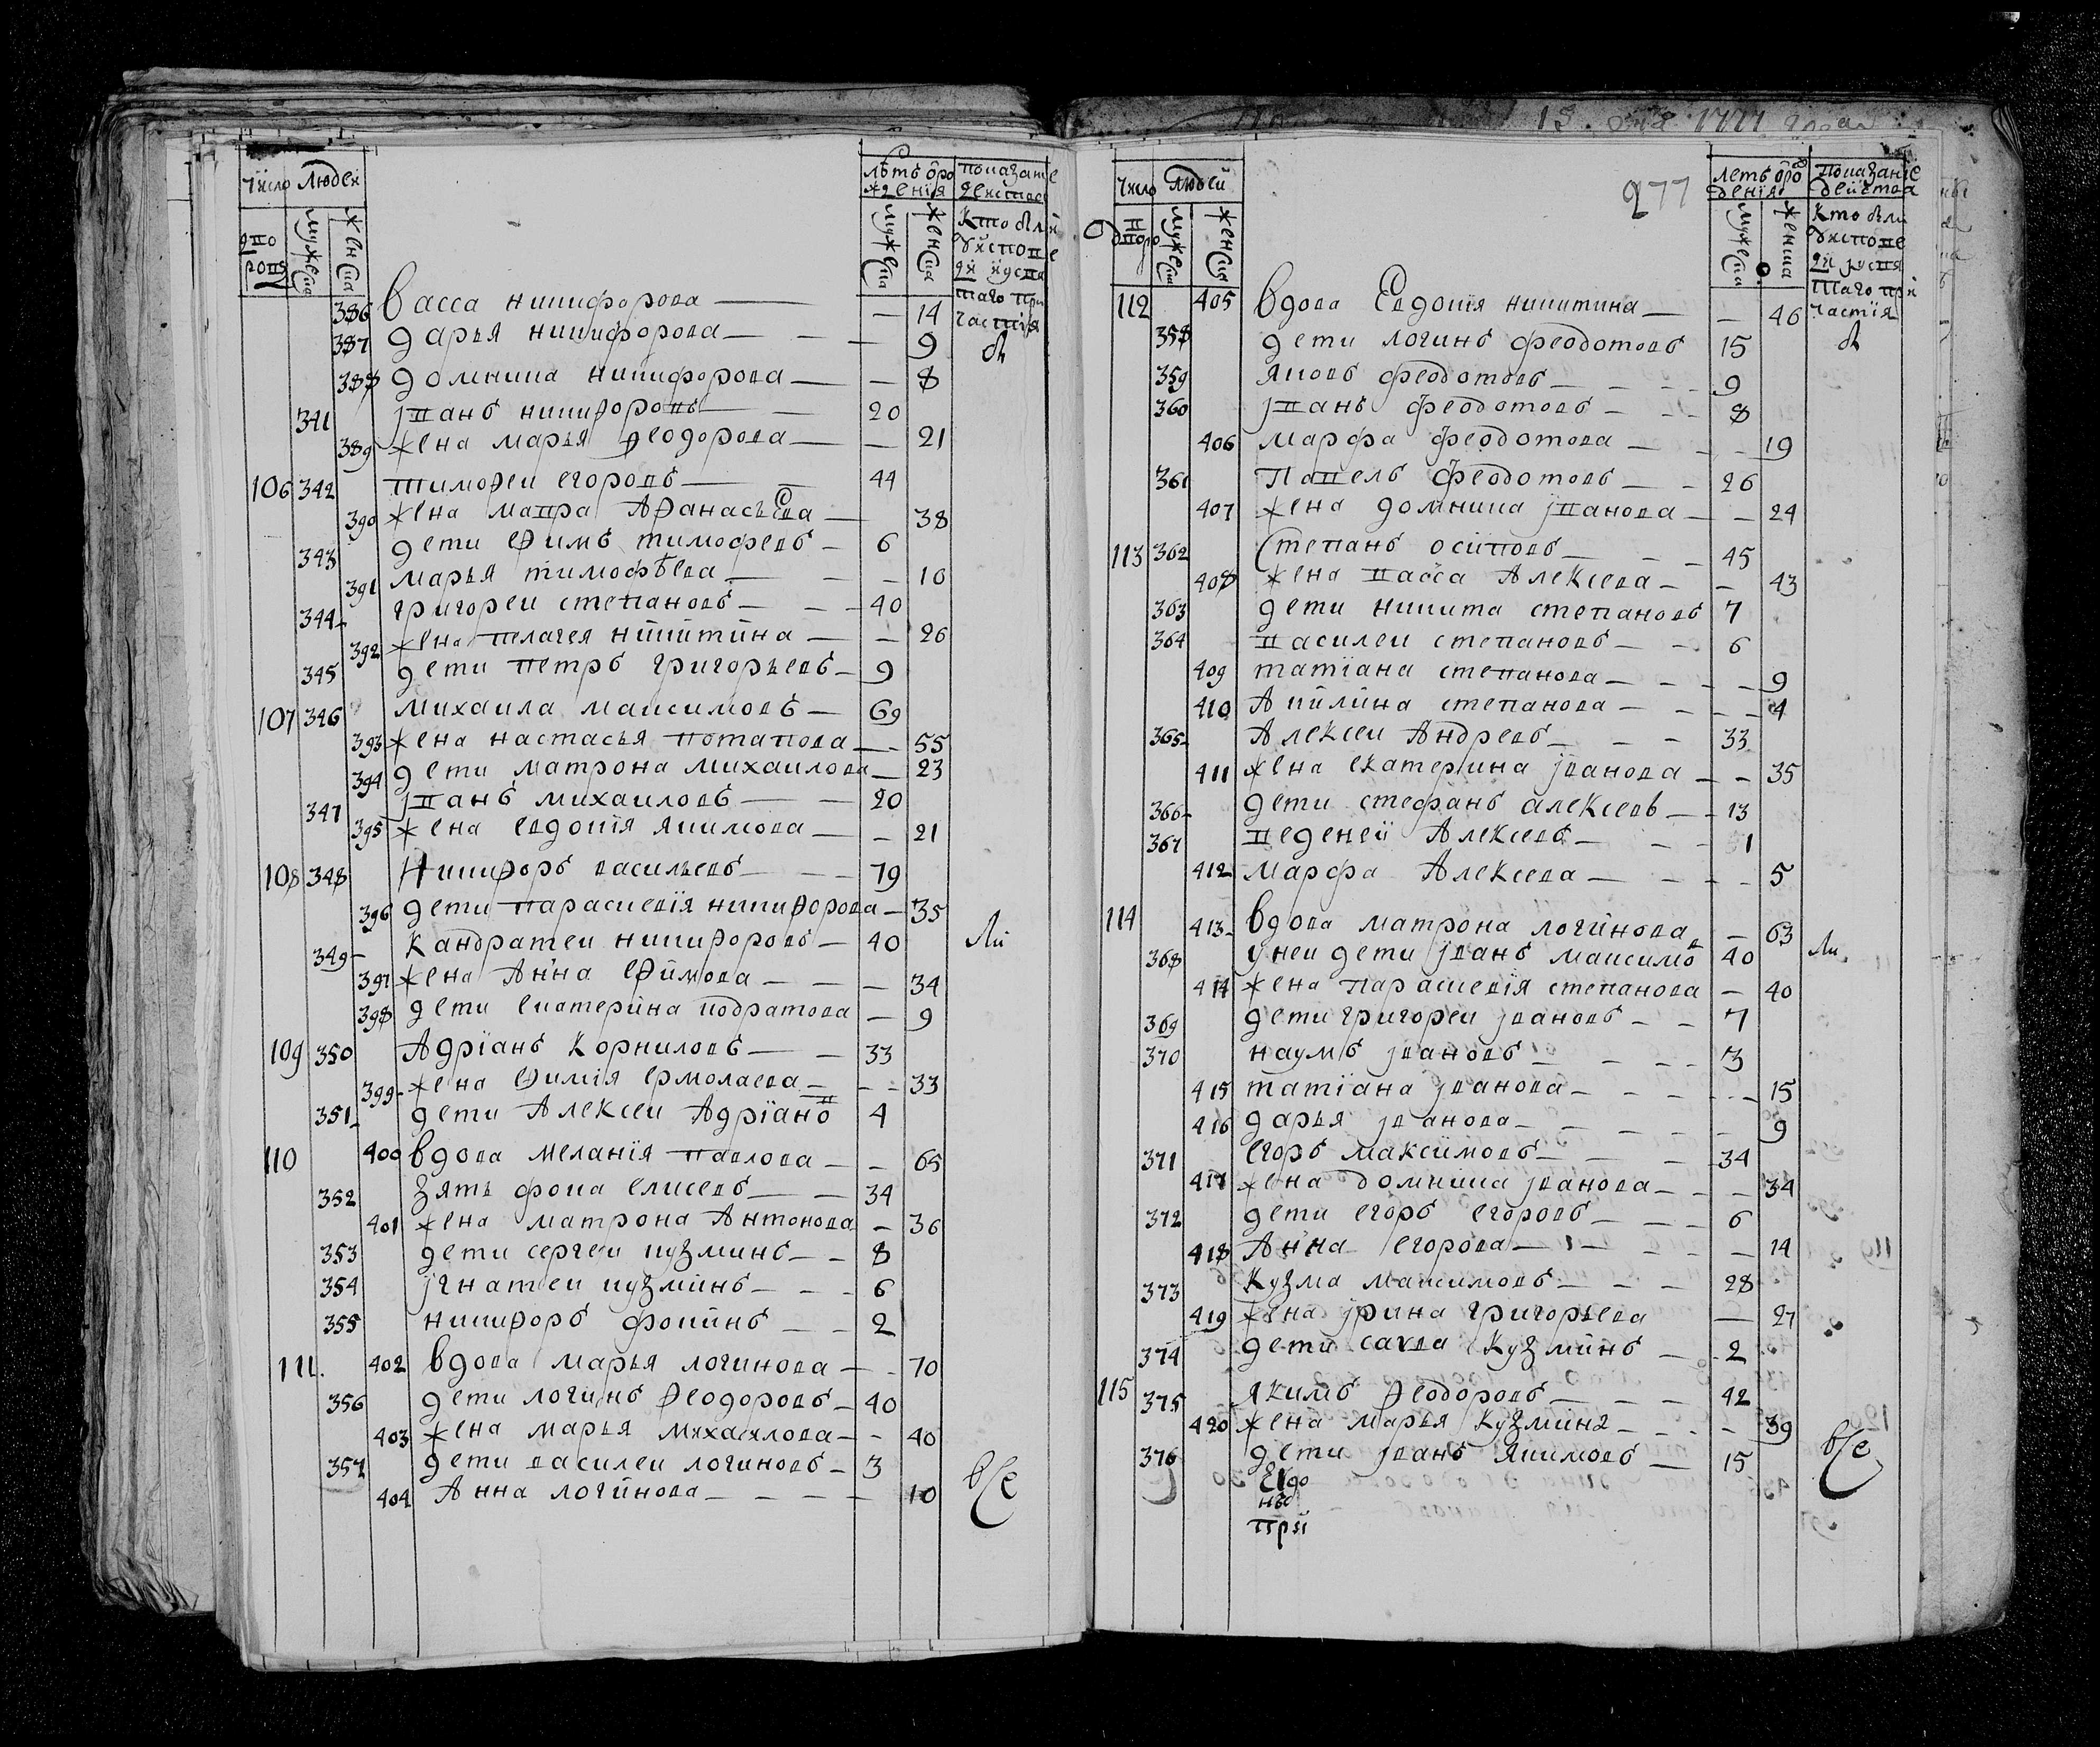 Число Людей
лѣтъ ѿ ро
жденїя
показанїе
дѣйство
дво
ровъ
мужеска
женска
мужеска
женска
кто были
у испове
ди и у свя
таго при
частїя
386 васса никифорова — 14
387 дарья никифорова — — — 9
388 домника никифорова — — 8
341 іванъ никифоровъ — 20
389 жена марья ѳеодорова — — 21
106 342 тимоѳеи егоровъ — 44
390 жена мавра Аѳанасьева — 38
343 дети еѳимъ тимофеевъ — 6
391 марья тимофѣева — — — 10
344 григореи степановъ — — — 40
392 жена пелагея никитина — — 26
345 дети петръ григорьевъ — 9
107 346 михаила максимовъ — 69
393 жена настасья потапова — — 55
394 дети матрона михаилова — 23
347 іванъ михаиловъ — — 20
395 жена евдокїя якимова — — 21
108 348 Никиѳоръ васильевъ — — 79
396 дети параскевїя никиѳорова — 35
349 кандратеи никиѳоровъ — 40
397 жена Анна еѳимова — — — 34
398 дети екатерина кодратова — 9
109 350 Адрїанъ Корниловъ — — 33
399 жена еѳимія ермолаева — — 33
351 дети Алексеи Адрїановъ 4
110 400 вдова меланїя павлова — — 65
352 зять фока елисеевъ — — 34
401 жена матрона Антонова — 36
353 дети сергеи кузминъ — — 8
354 ігнатеи кузминъ — — — 6
355 никиѳоръ фокинъ — — 2
111. 402 вдова марья логинова — — 70
356 дети логинъ ѳеодоровъ — 40
403 жена марья михаилова — — 40
357 дети василеи логиновъ — 3
404 Анна логинова — — — — 10
бы
ли
все
277
число людей
леть ѿ ро
денїя
показанїе
действа
дворо
мужеска
женска
мужеска
женска
кто были
у испове
ди у свя
таго при
частїя
112 405 вдова Евдокїя никитина — — 46
358 дети логинъ феодотовъ 15
359 яковъ феодотовъ — — — 9
360 іванъ феодотовъ — — — 8
406 марфа феодотова — — — 19
361 Павелъ феодотовъ — — 26
407 жена домника іванова — — 24
113 362 Степанъ осиповъ — — — 45
408 жена васса Алексеева — — 43
363 дети никита степановъ 7
364 василеи степановъ — — 6
409 татїана степанова — — — — 9
410 Акилина степанова — — — — 4
365 Алексеи Андреевъ — — — 33
411 жена екатерина іванова — — 35
366 дети стефанъ алексеевъ — 13
367 веденей Алексеевъ — — — 1
412 марфа Алексеева — — — — 5
114 413 вдова матрона логинова — 63
368 у неи дети іванъ максимовъ 40
414 жена параскевїя степанова — 40
369 дети григореи івановъ — — 7
370 наумъ івановъ — — — 3
415 татїана іванова — — — — 15
416 дарья іванова — — — — 9
371 егоръ максимовъ — — 34
417 жена домника іванова — — — 34
372 дети егоръ егоровъ — — — 6
418 Анна егорова — — — — 14
373 кузма максимовъ — — — 28
419 жена ірина григорьева — 27
374 дети савва кузминъ — 2
115 375 якимъ ѳеодоровъ — — — 42
420 жена марья кузмина — — — 39
376 дети іванъ якимовъ — 15
бы
ли
все
при